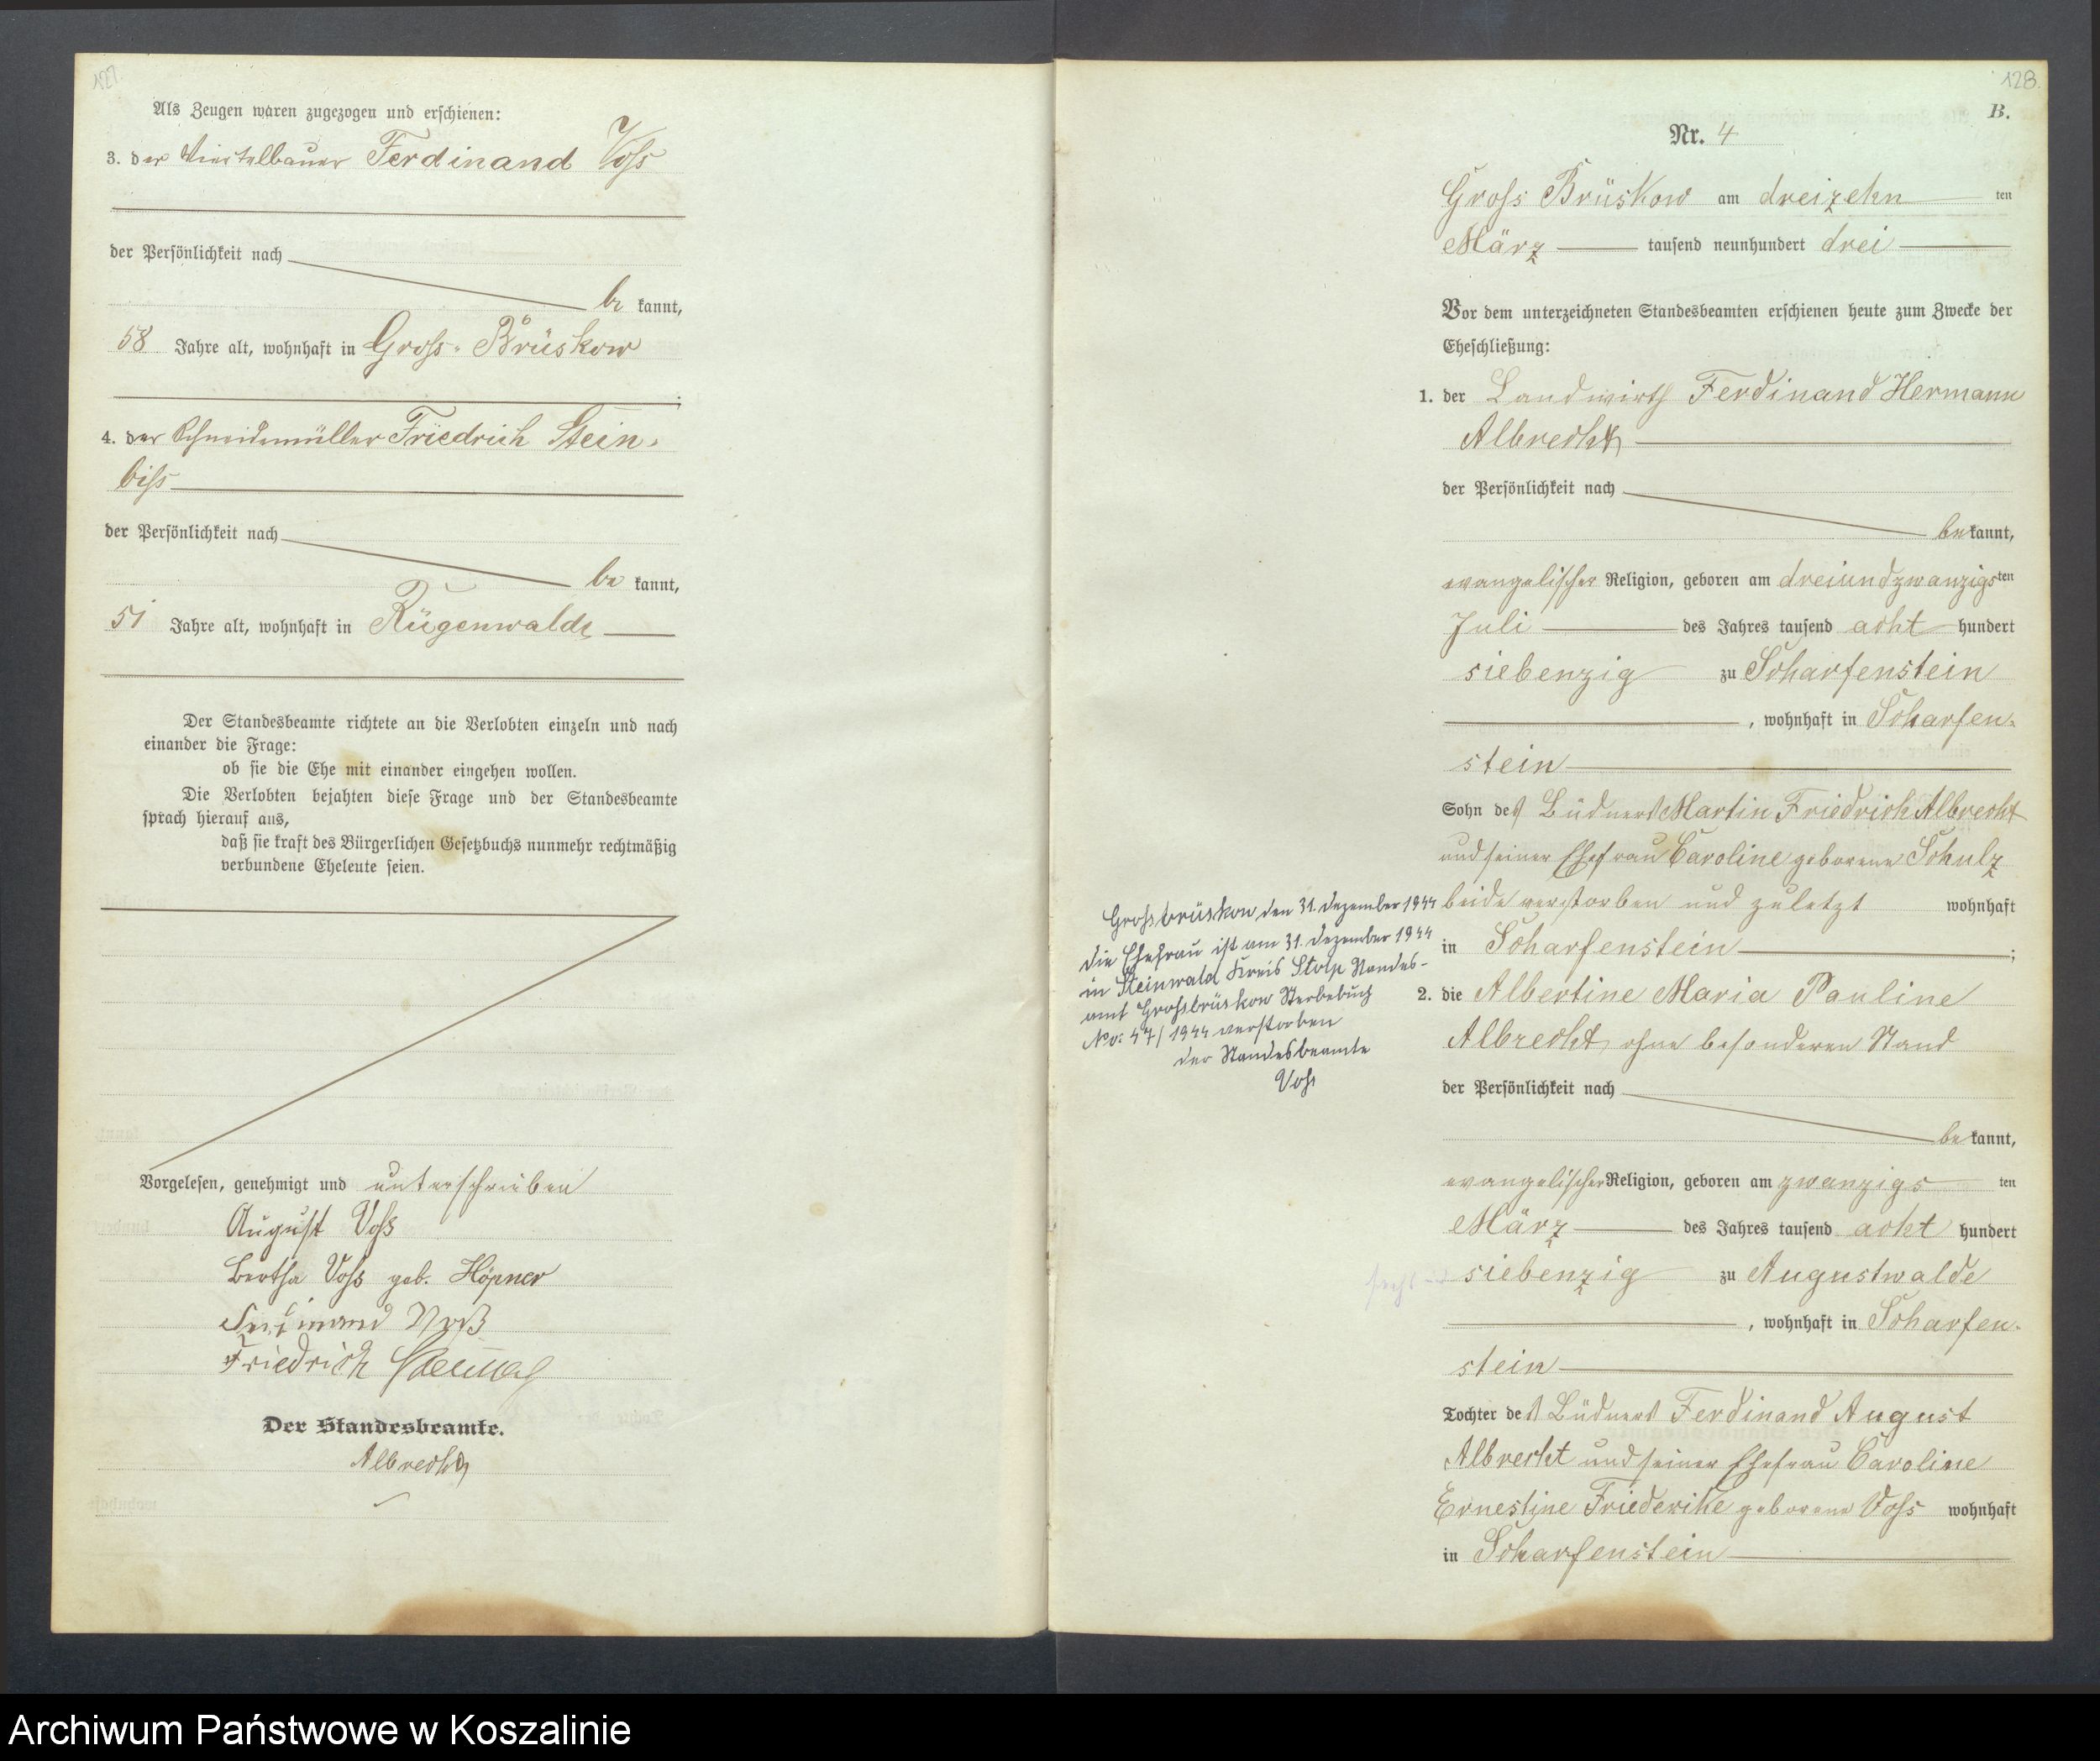 127.
Als Zeugen waren zugezogen und erschienen:
3. der Viertelbauer Ferdinand Voſs
der Persönlichkeit nach
be kannt,
58 Jahre alt, wohnhaft in Groſs-Brüskow
;
4. der Schneidemüller Friedrich Stein-
biſs
der Persönlichkeit nach
be kannt,
51 Jahre alt, wohnhaft in Rügenwalde
Der Standesbeamte richtete an die Verlobten einzeln und nach
einander die Frage:
ob sie die Ehe mit einander eingehen wollen.
Die Verlobten bejahten diese Frage und der Standesbeamte
sprach hierauf aus,
daß sie kraft des Bürgerlichen Gesetzbuchs nunmehr rechtmäßig
verbundene Eheleute seien.
Vorgelesen, genehmigt und unterschrieben
August Voſs
Bertha Voſs geb. Höpner
Ferdinand Voß
Friedrich
Der Standesbeamte.
Albrecht
128.
B.
Nr. 4
Groſs Brüskow am dreizehn ten
März tausend neunhundert drei
Vor dem unterzeichneten Standesbeamten erschienen heute zum Zwecke der
Eheschließung:
1. der Landwirth Ferdinand Hermann
Albrecht
der Persönlichkeit nach
be kannt,
evangelischer Religion, geboren am dreiundzwanzigsten
Juli des Jahres tausend acht hundert
siebenzig zu Scharfenstein
, wohnhaft in Scharfen-
stein
Sohn des Büdners Martin Friedrich Albrecht
und seiner Ehefrau Caroline geborene Schulz
beide verstorben und zuletzt wohnhaft
in Scharfenstein ;
2. die Albertine Maria Pauline
Albrecht, ohne besonderen Stand
der Persönlichkeit nach
be kannt,
evangelischer Religion, geboren am zwanzigs ten
März des Jahres tausend acht hundert
siebenzig zu Augustwalde
, wohnhaft in Scharfen-
stein
Tochter des Büdners Ferdinand August
Albrecht und seiner Ehefrau Caroline
Ernestine Friederike geborene Voſs wohnhaft
in Scharfenstein
Groſsbrüskow den 31. Dezember 1944
Die Ehefrau ist am 31. Dezember 1944
in Steinwald Kreis Stolp Standes-
amt Groſsbrüskow Sterbebuch
No: 47/1944 verstorben
der Standesbeamte
Voſs
Archiwum Państwowe w Koszalinie